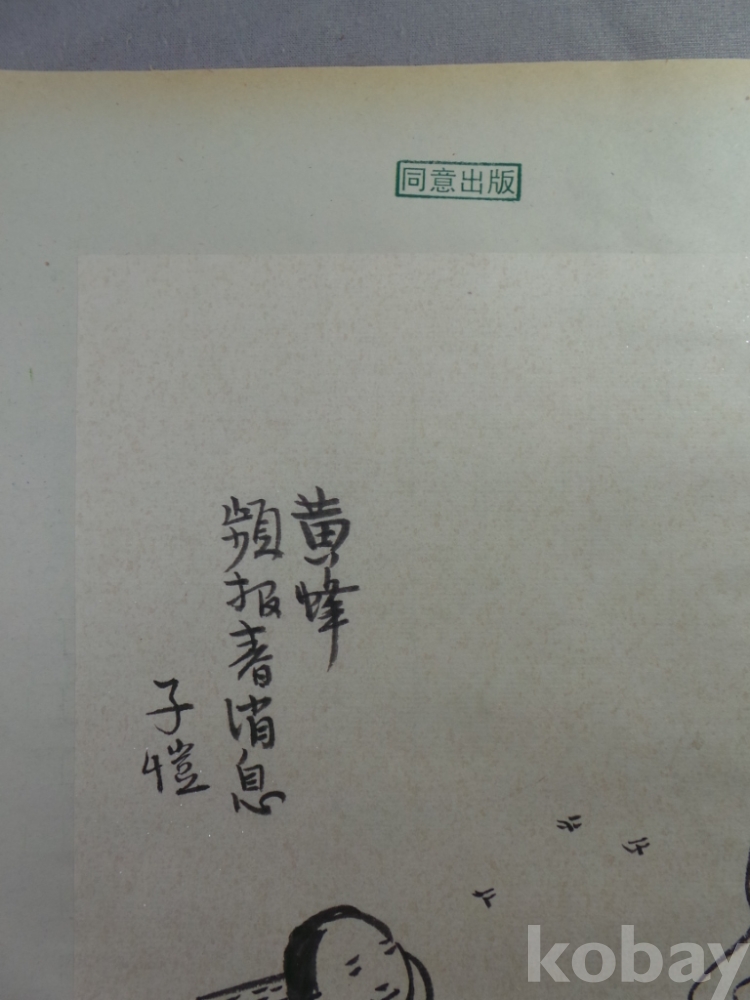 同意出版
黄蜂
頻报春消息
子愷
kobay